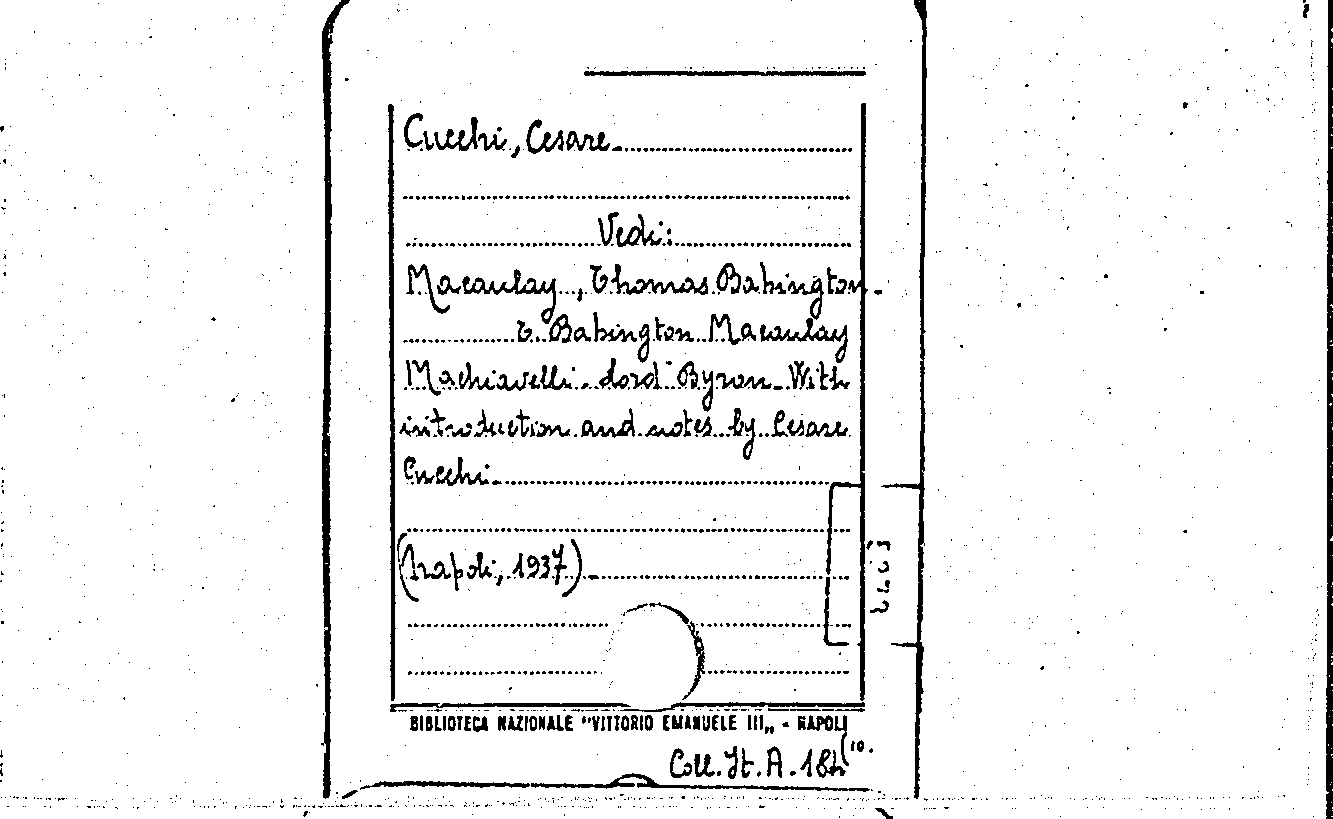 Cucchi, Cesare.
Vedi:
Macaulay, Thomas Babington.
T. Babington Macaulay
Machiavelli. Lord Byron. With
introduction and notes by Cesare
Cucchi.
(Napoli, 1937).
BIBLIOTECA NAZIONALE "VITTORIO EMANUELE III„ - NAPOLI
Coll. It. A. 184 (10.